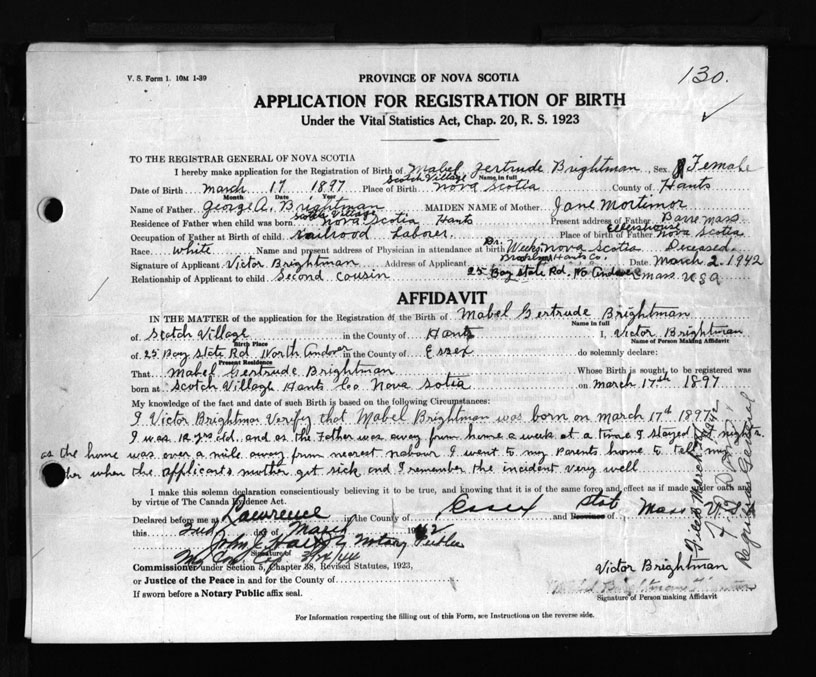 V. S. Form 1. 10M 1-39
PROVINCE OF NOVA SCOTIA
130.
APPLICATION FOR REGISTRATION OF BIRTH
Under the Vital Statistics Act, Chap. 20, R. S. 1923
TO THE REGISTRAR GENERAL OF NOVA SCOTIA
I hereby make application for the Registration of Birth of Mabel Gertrude Brightman, Sex Female
Name in full
Scotch Village
Date of Birth March 17 1897 Place of Birth Nova Scotia County of Hants
Month Date Year
Name of Father George A. Brightman MAIDEN NAME of Mother Jane Mortimor
Scotch Village
Residence of Father when child was born Nova Scotia Hants Present address of Father Barre Mass
Ellershouse
Occupation of Father at Birth of child Railroad Laborer. Place of birth of Father Nova Scotia
Race White Name and present address of Physician in attendance at birth Dr. Weeks Nova Scotia Deceased.
Brooklyn Hants Co.
Signature of Applicant Victor Brightman Address of Applicant Date March 2, 1942
Relationship of Applicant to child Second Cousin 25 Bay State Rd, No Andover Mass USA
AFFIDAVIT
IN THE MATTER of the application for the Registration of the Birth of Mabel Gertrude Brightman
Name in full
of Scotch Village in the County of Hants I, Victor Brightman
Birth Place Name of Person Making Affidavit
of 25 Bay State Rd North Andover in the County of Essex do solemnly declare:
Present Residence
That Mabel Gertrude Brightman Whose Birth is sought to be registered was
born at Scotch Village Hants Co Nova Sotia on March 17th 1897
My knowledge of the fact and date of such Birth is based on the following Circumstances:
I Victor Brightman Verify that Mabel Brightman was born on March 17th 1897
I was 12 yrs old. and as the Father was away from home a week at a time I stayed nights
as the home was over a mile away from nearest nabour I went to my Parents home to tell my
when the applicants mother got sick and I remember the incident very well
I make this solemn declaration conscientiously believing it to be true, and knowing that it is of the same force and effect as if made under oath and
by virtue of The Canada Evidence Act.
Declared before me at Lawrence in the County of Essex and Province of Mass U.S.
this 2nd day of March 1942
John Notary Public
Signature of
Commissioner under Section 5, Chapter 38, Revised Statutes, 1923,
or Justice of the Peace in and for the County of
If sworn before a Notary Public affix seal.
Victor Brightman
Signature of Person making Affidavit
For Information respecting the filling out of this Form, see Instructions on the reverse side.
Registrar General